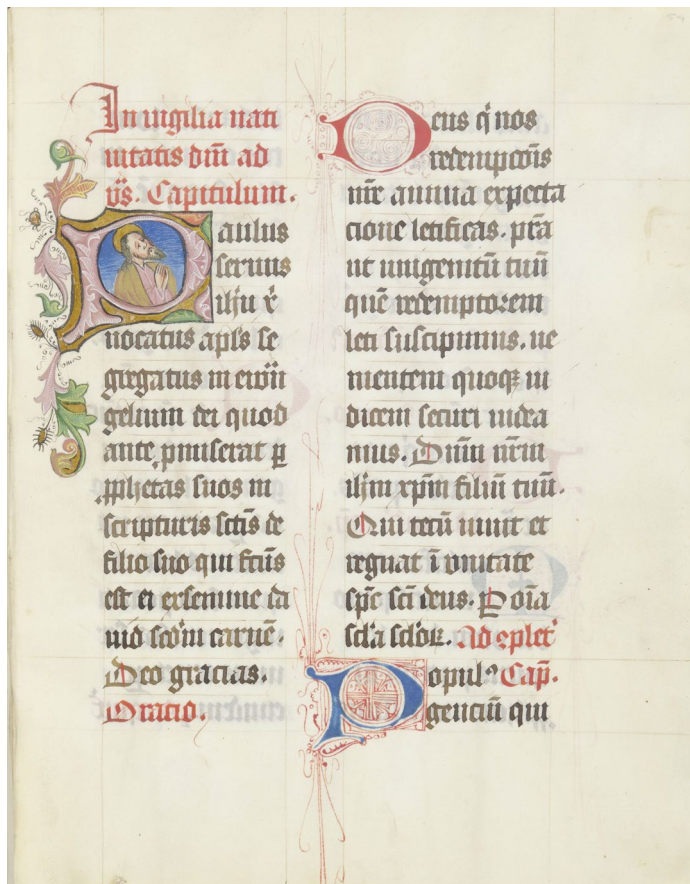 In vigilia nati
uitatis dm̄ ad
vs̄. Capitulum.
Paulus
seruus
ihū x̄
uocatus apls̄ se
gregatus in ewā
gelium dei quod
ante pmiserat ꝑ
ꝓphetas suos in
scripturis sctīs de
filio suo qui fctūs
est ei ex semine da
uid scdm̄ carnē.
Deo gracias.
Oratio.
Deus q̇ nos
redempcōis
nrē annua expecta
cione letificas. prā
ut unigenitū tuū
quē redemptorem
leti suscipimus. ue
nientem quoqꝫ iu
dicem securi uidea
mus. Dnm̄ nrm̄
ihm̄ xpm̄ filiū tuū.
Qui tecū uiuit et
regnat ī vnitate
spc̄ sct̄i deus. P oīa
scl̄a scl̄oꝝ. Ad ꝯplet̄
Populꝰ Cap̄.
genciū qui